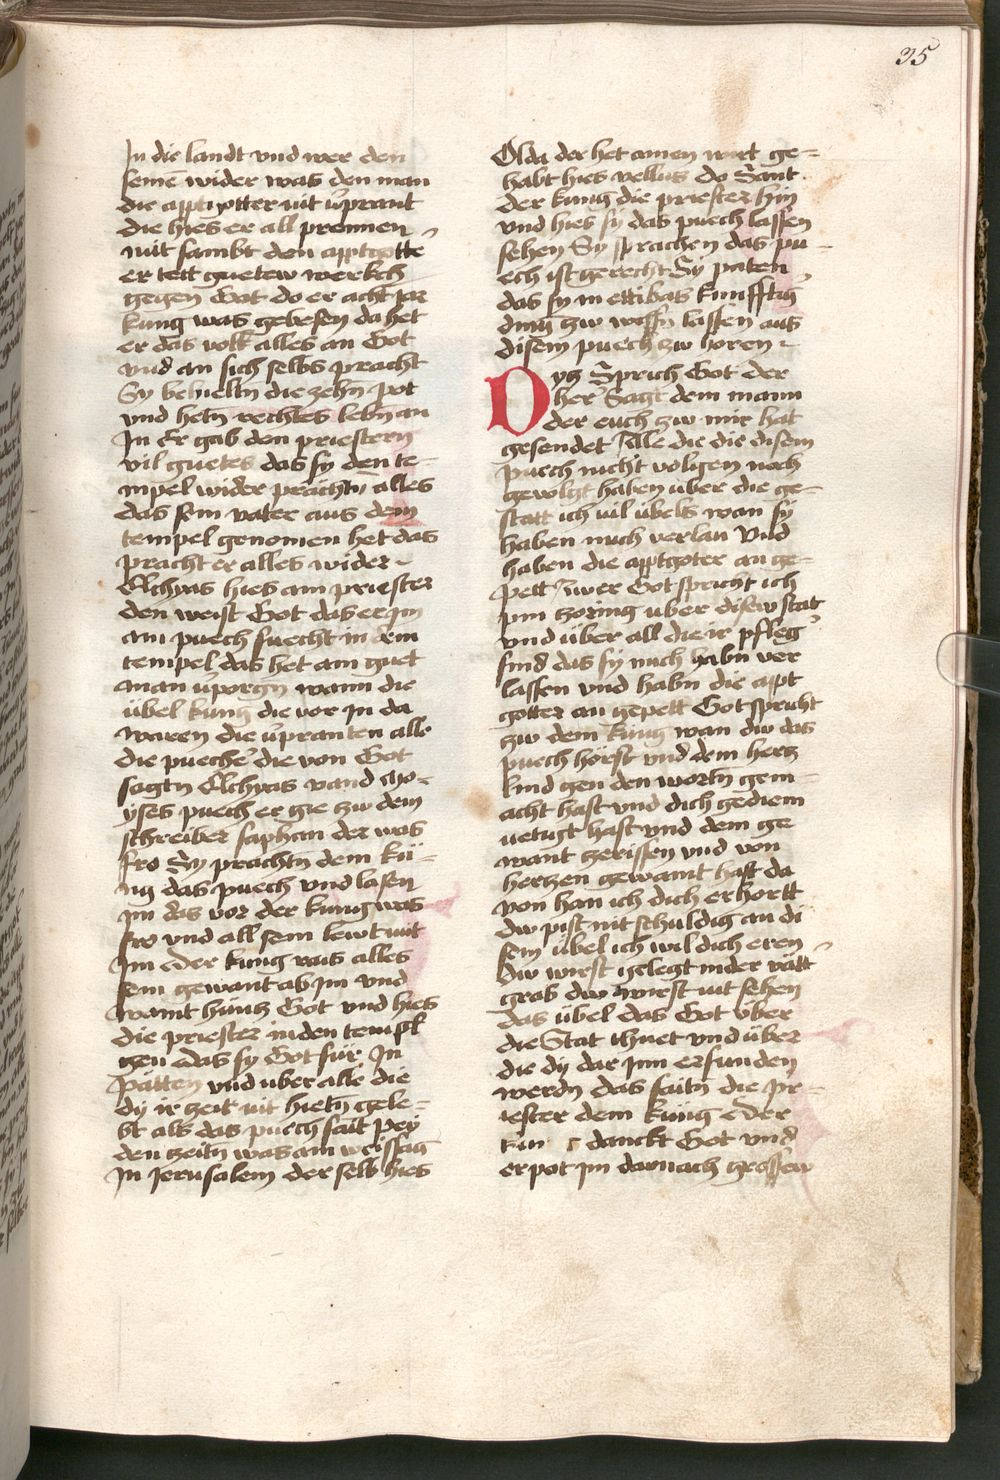 35
In die landt vnd wer den
seinē wider was den man
die apptgötter nit v̈prant
die hies er all prennen
mit sambt den apptgotte
er tett guetew werkch
gegen Got do er acht jar
kung was gebesen da het
er das volk alles an Got
vnd an sich selbs pracht
Sy behieltn̄ die zehn̄ pot
vnd hetn̄ rechtes lebn̄ an
In Er gab den priestern
vil guetes das sy den te-
mpel wider prachtn̄ alles
das sein vater aus dem
tempel genomen het das
pracht er alles wider
Elchyas hies ain priester
den weist Got das er im
ain puech suecht in dem
tempel das het ain guet
man v̈porgn̄ wann die
übel kung die vor In da
waren die v̈pranten alle
die puecher die von Got
sagtn̄ Elchyas vand Mo-
yses puech er gie zw dem
schreiber saphan der was
fro Sy prachtn̄ dem kü-
ng das puech vnd lasen
im das vor der kung was
fro vnd all sein lewt mit
Im Der kung rais alles
sein gewant ab im vnd
waint hüntz Got vnd hies
die priester in den templ
gen das sy Got für In
pätten vnd uber alle die
dy ir zeit nit hietn̄ gele-
bt als das puech sait pey
den zeitn̄ was ain weissag
in Jerusalem der selb hies
Olda der het ainen wirt ge-
habt hies vellus do Sant
der kung die priester hin
vnd hies sy das puech lassen
sehen Sy sprachen das pu-
ech ist gerecht Sy paten
das sy in ettibas kunfftig
ding zw wissn̄ lassen aus
disem puech zw horen
Dytz Sprich Got der
her Sagt dem mann
der euch zw mir hat
gesendet Alle die die disem
puech nicht volgen noch
gewolgt haben uber die ge-
statt ich vil übels wan sy
haben mich verlan Vnd
haben die apptgoter an ge-
pett Awer Got spricht ich
pin zoring uber disew stat
vnd über all die ir pfleg
sind das sy mich habn̄ ver
lassen vnd habn̄ die appt
gotter an gepett Got spricht
zw dem kung wan dw das
puech hörst vnd dein hertz
kind gen den wortn̄ gem-
acht hast vnd dich gediem
uetigt hast vnd dein ge
want zerissen vnd von
hertzen gewaint hast da
von han ich dich erhortt
dw pist nit schuldig an di
sem übel ich wil dich eren
Dw wirst gelegt in der vätt
grab dw wirst nit sehen
das übel das Got über
die Stat thuet vnd über
die dy dar inn erfunden
werdn̄ das saitn̄ die pr-
iester dem kung Der
danckt Got vnd
erpot im darnach grossew